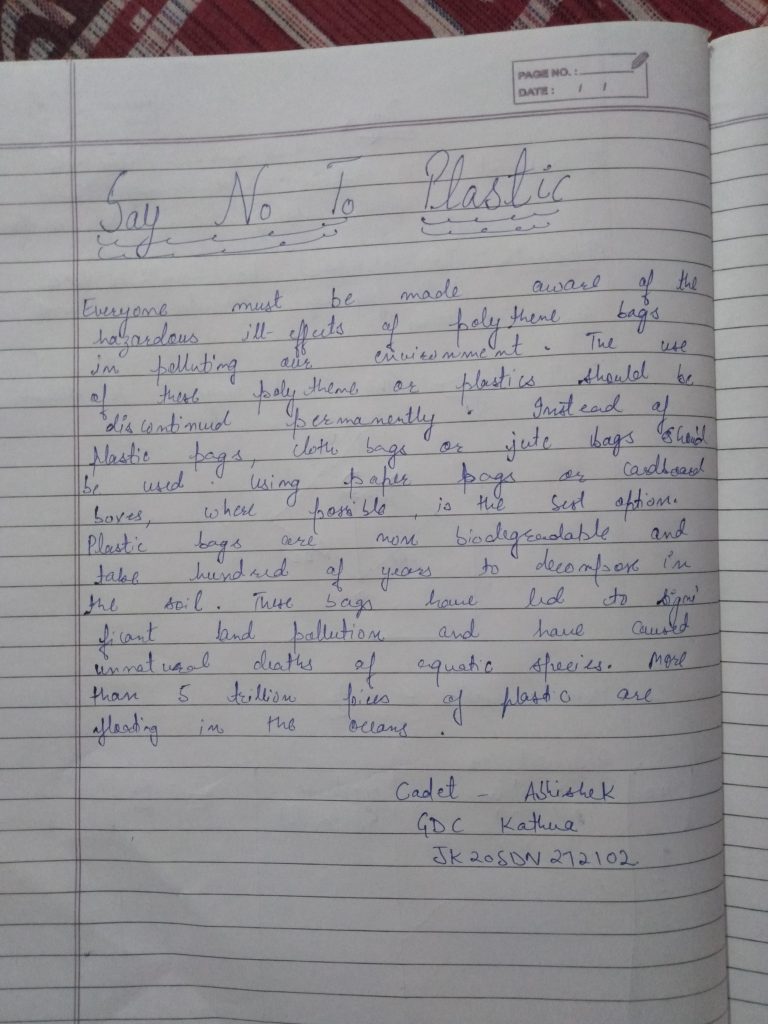 PAGE NO. :
DATE : / /
Say No To Plastic
Everyone must be made aware of the
hazardous ill-effects of polythene bags
in polluting our environment. The use
of these polythene or plastics should be
discontinud permanently. Instead of
plastic pags, cloth bags or jute bags should
be used. using paper pags or cardboard
boxes, where possible, is the best option.
Plastic bags are non biodegradable and
take hundred of years to decompose in
the soil. These bags have led to signi
ficant land pollution and have caused
unnatural deaths of aquatic species. More
than 5 trillion pieces of plastic are
floating in the oceans.
Cadet - Abhishek
GDC Kathua
JK20SDN272102